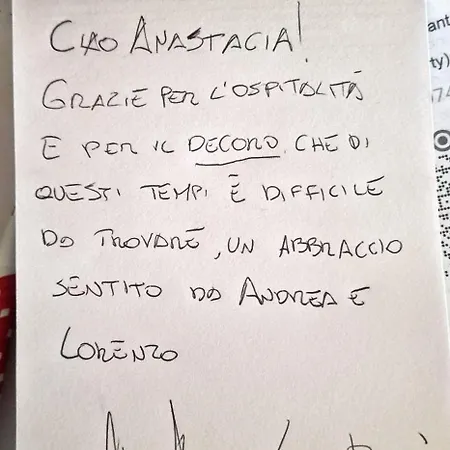 CIAO ANASTACIA!
GRAZIE PER L'OSPITALITÀ
E PER IL DECORO CHE DI
QUESTI TEMPI È DIFFICILE
DA TROVARE, UN ABBRACCIO
SENTITO DA ANDREA E
LORENZO
ant
ty)